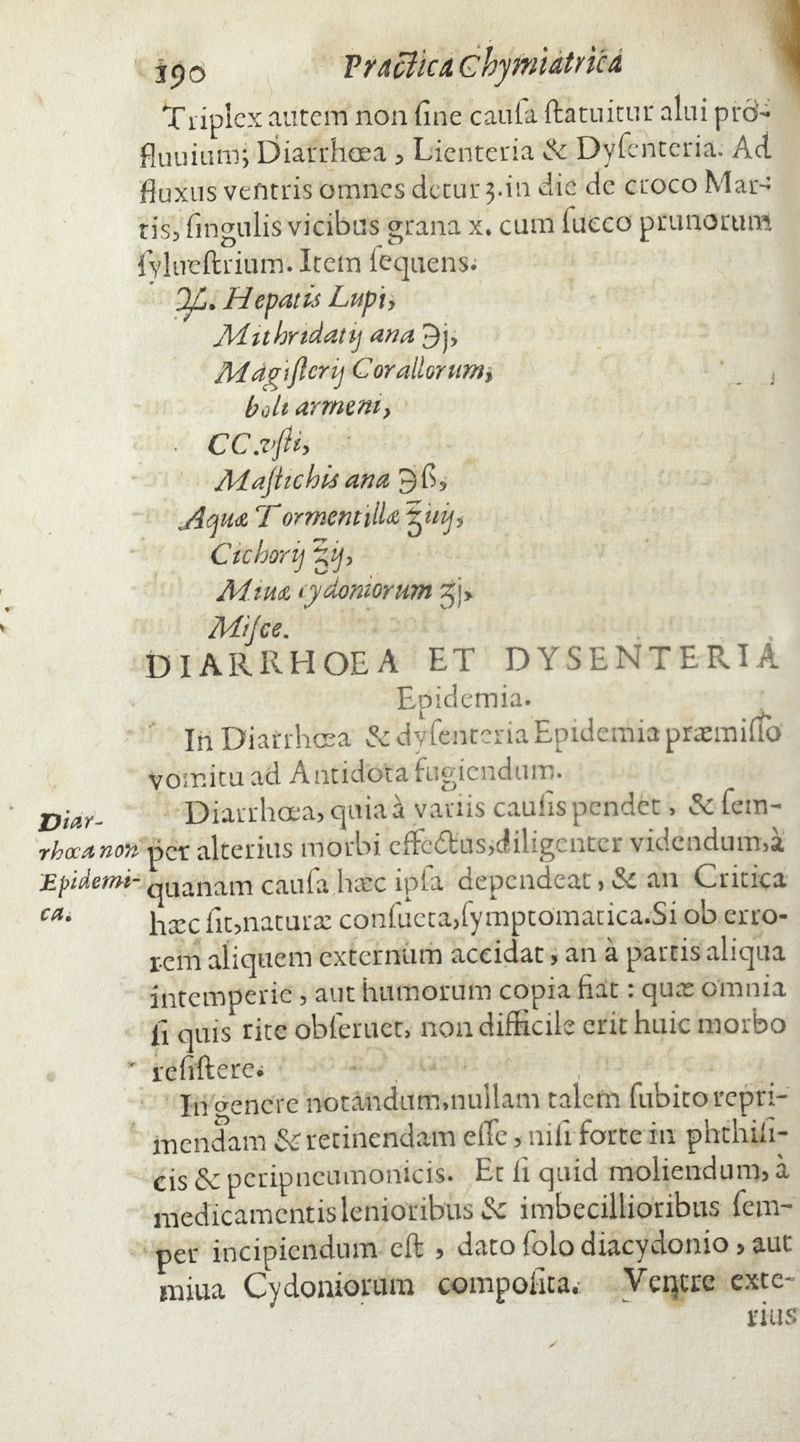 190 Practica Chymiatrica
Triplex autem non ſine cauſa ſtatuitur alui pro-
fluuium; Diarrhœa, Lienteria & Dyſenteria. Ad
fluxus ventris omnes detur 3. in die de croco Mar-
tis, ſingulis vicibus grana x. cum ſucco prunorum
ſylueſtrium. Item ſequens.
℞. Hepatis Lupi,
Mithridatij ana ℈j,
Magiſterij Corallorum,
boli armeni,
CC. vſti,
Maſtichis ana ℈ß,
Aquæ Tormentillæ ℥iiij,
Cichorij ℥ij,
Miuæ cydoniorum ℥j,
Miſce.
DIARRHOEA ET DYSENTERIA
Epidemia.
In Diarrhœa & dyſenteria Epidemia præmiſſo
vomitu ad Antidota fugiendum.
Diar-
rhœa non
Epidemi-
ca.
Diarrhœa, quia à variis cauſis pendet, & ſem-
per alterius morbi effectus, diligenter videndum, à
quanam cauſa hæc ipſa dependeat, & an Critica
hæc ſit, naturæ conſueta, ſymptomatica. Si ob erro-
rem aliquem externum accidat, an à partis aliqua
intemperie, aut humorum copia fiat: quæ omnia
ſi quis rite obſeruet, non difficile erit huic morbo
reſiſtere.
In genere notandum, nullam talem ſubito repri-
mendam & retinendam eſſe, niſi forte in phthiſi-
cis & peripneumonicis. Et ſi quid moliendum, à
medicamentis lenioribus & imbecillioribus ſem-
per incipiendum eſt, dato ſolo diacydonio, aut
miua Cydoniorum compoſita. Ventre exte-
rius